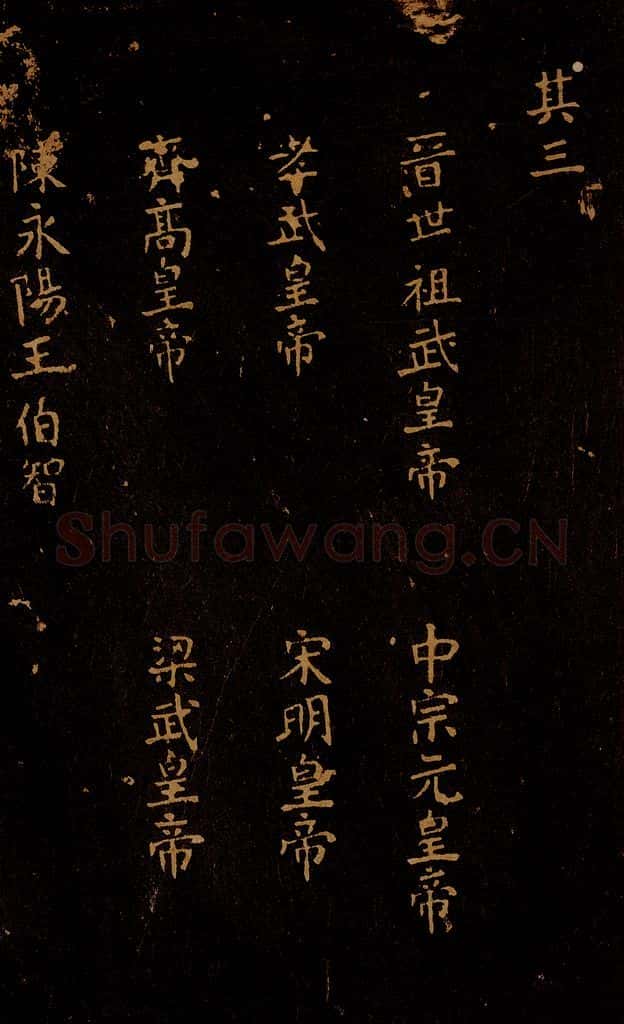 其三
晋世祖武皇帝 中宗元皇帝
孝武皇帝 宋明皇帝
齊高皇帝 梁武皇帝
陳永陽王伯智
Shufawang.CN